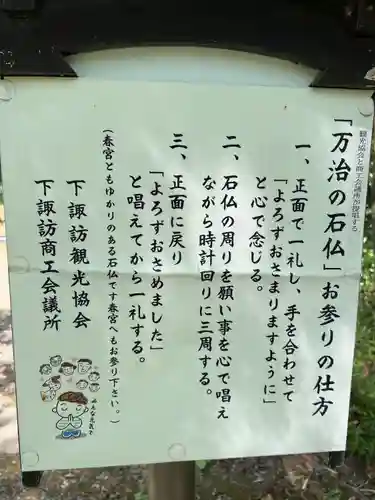 観光協会と商工会議所が提唱する
「万治の石仏」お参りの仕方
一、正面で一礼し、手を合わせて
「よろずおさまりますように」
と心で念じる。
二、石仏の周りを願い事を心で唱え
ながら時計回りに三周する。
三、正面に戻り
「よろずおさめました」
と唱えてから一礼する。
（春宮ともゆかりのある石仏です春宮へもお参り下さい。）
下諏訪観光協会
下諏訪商工会議所
みんな元気で